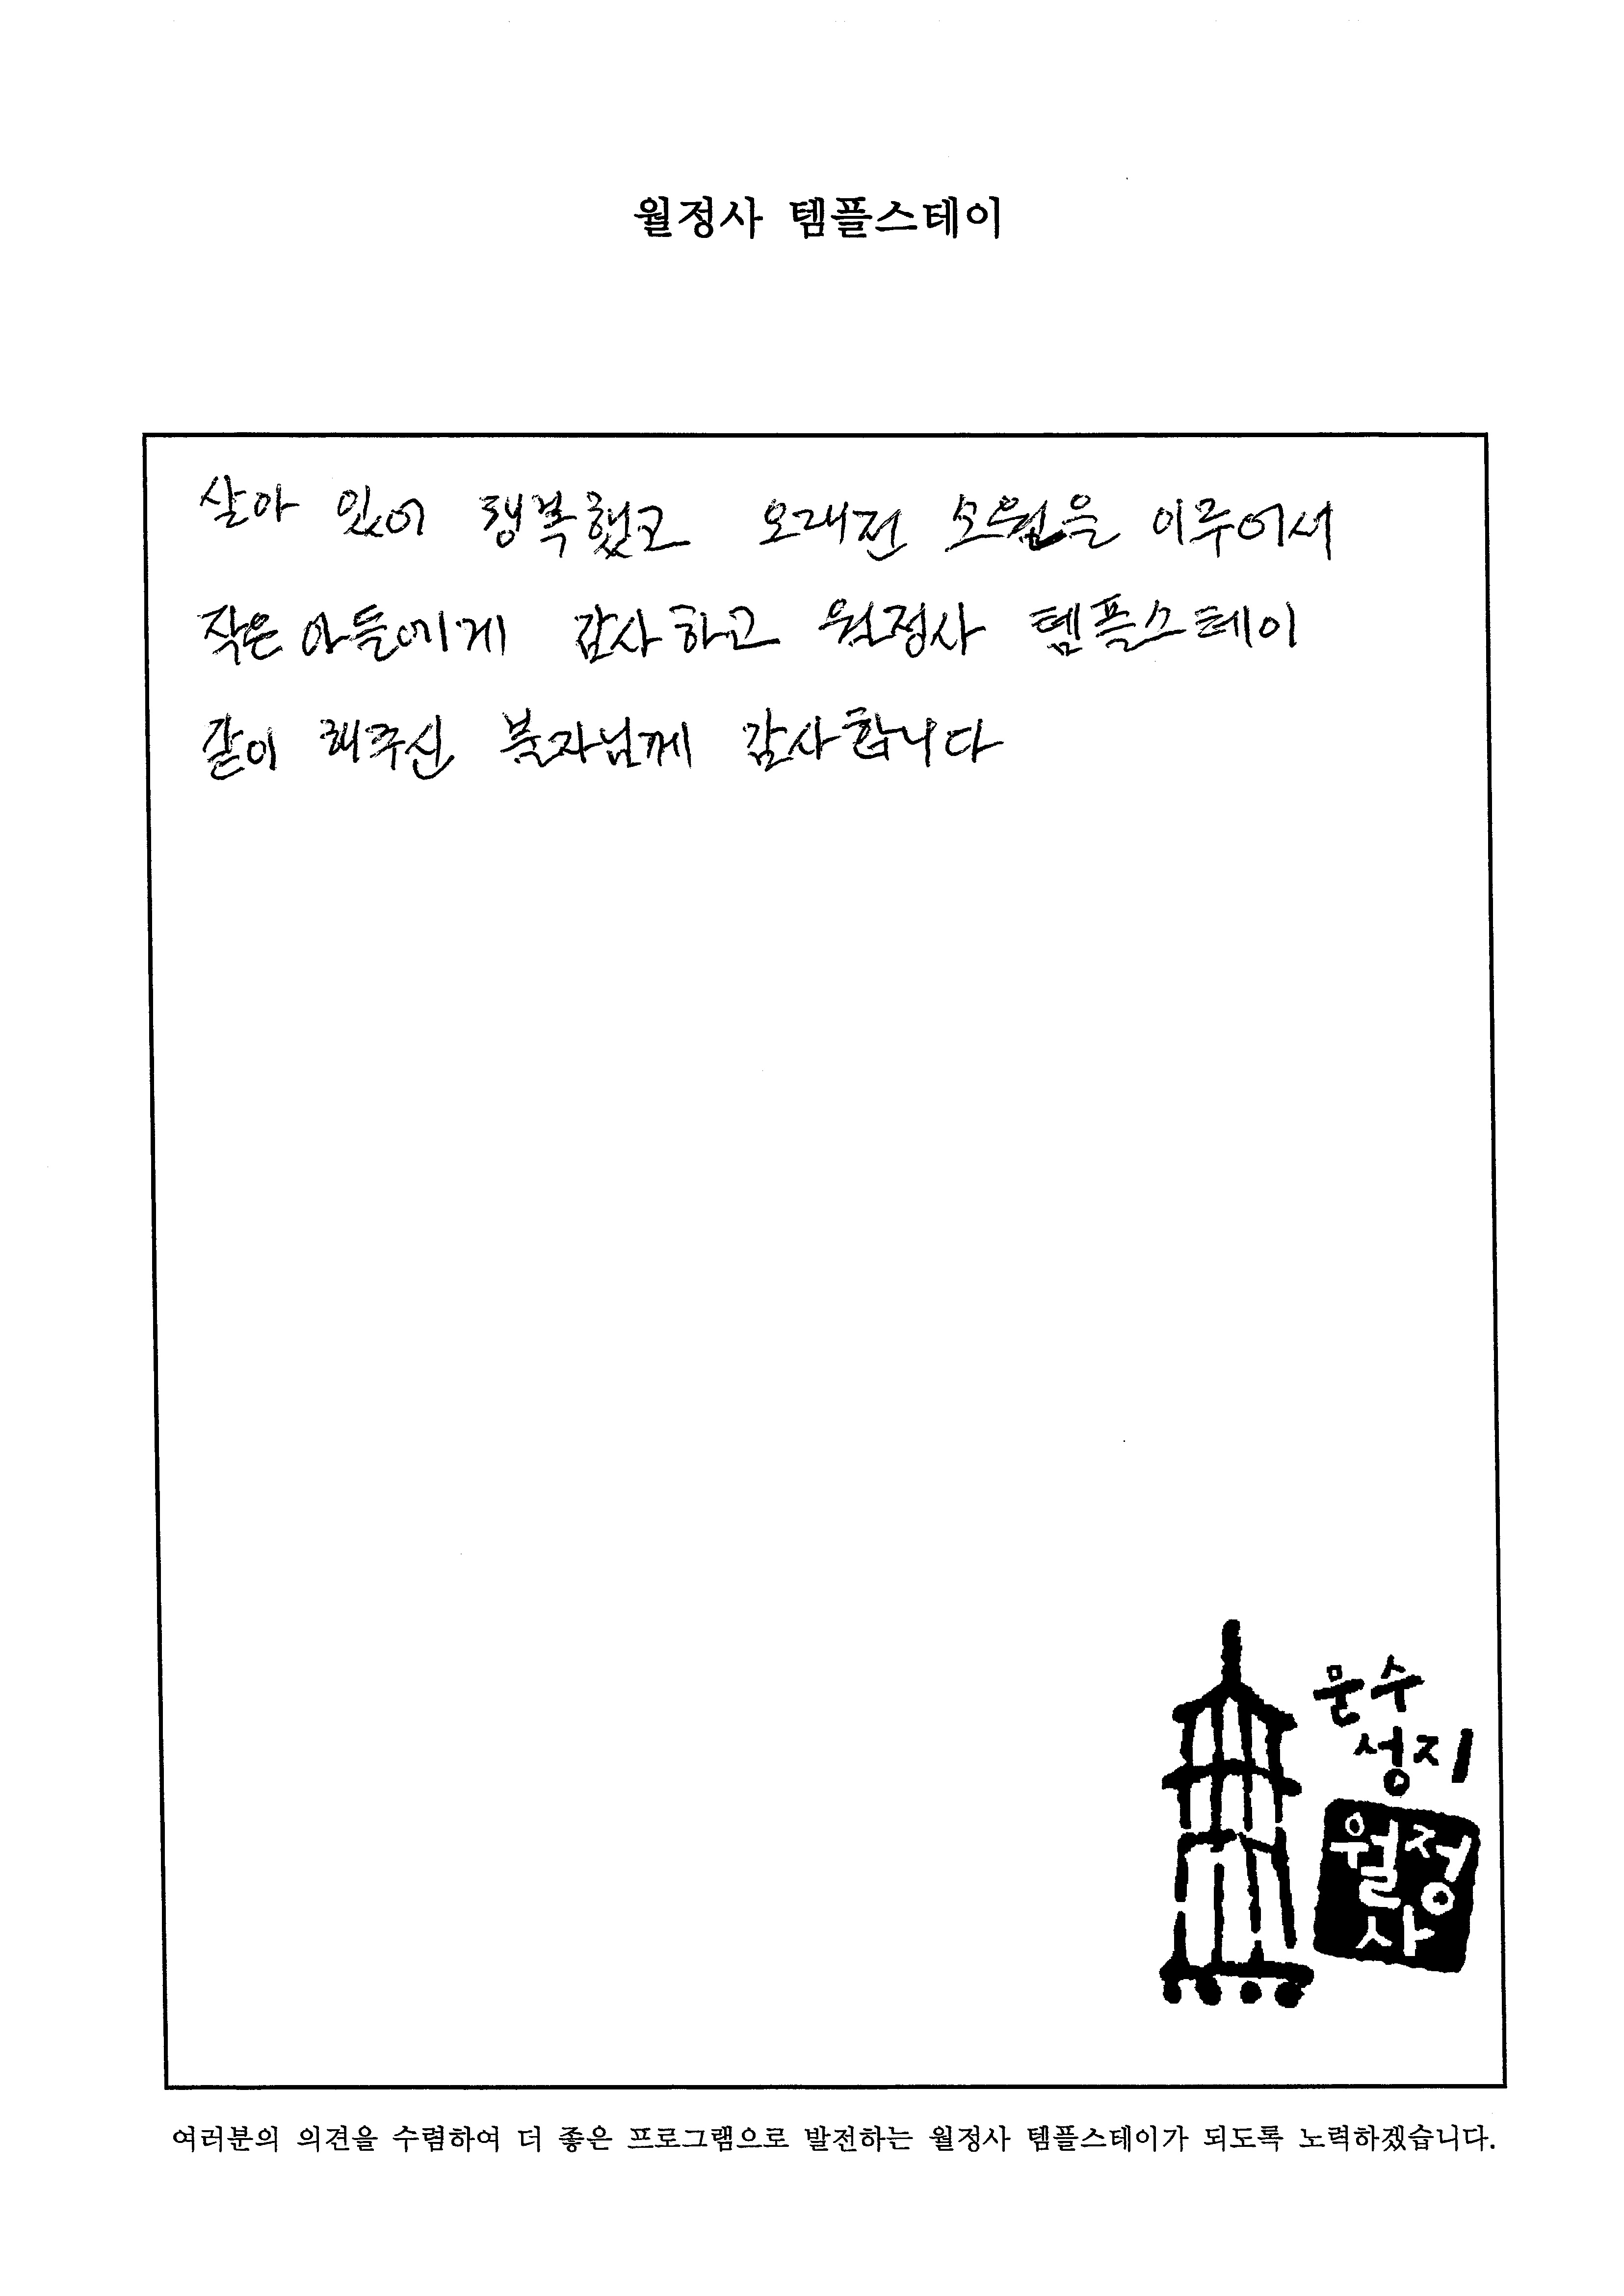 월정사 템플스테이
살아 있어 행복했고 오래전 소원을 이루어서
작은 아들에게 감사하고 월정사 템플스테이
같이 해주신 불자님께 감사합니다
문수
성지
월정
사
여러분의 의견을 수렴하여 더 좋은 프로그램으로 발전하는 월정사 템플스테이가 되도록 노력하겠습니다.